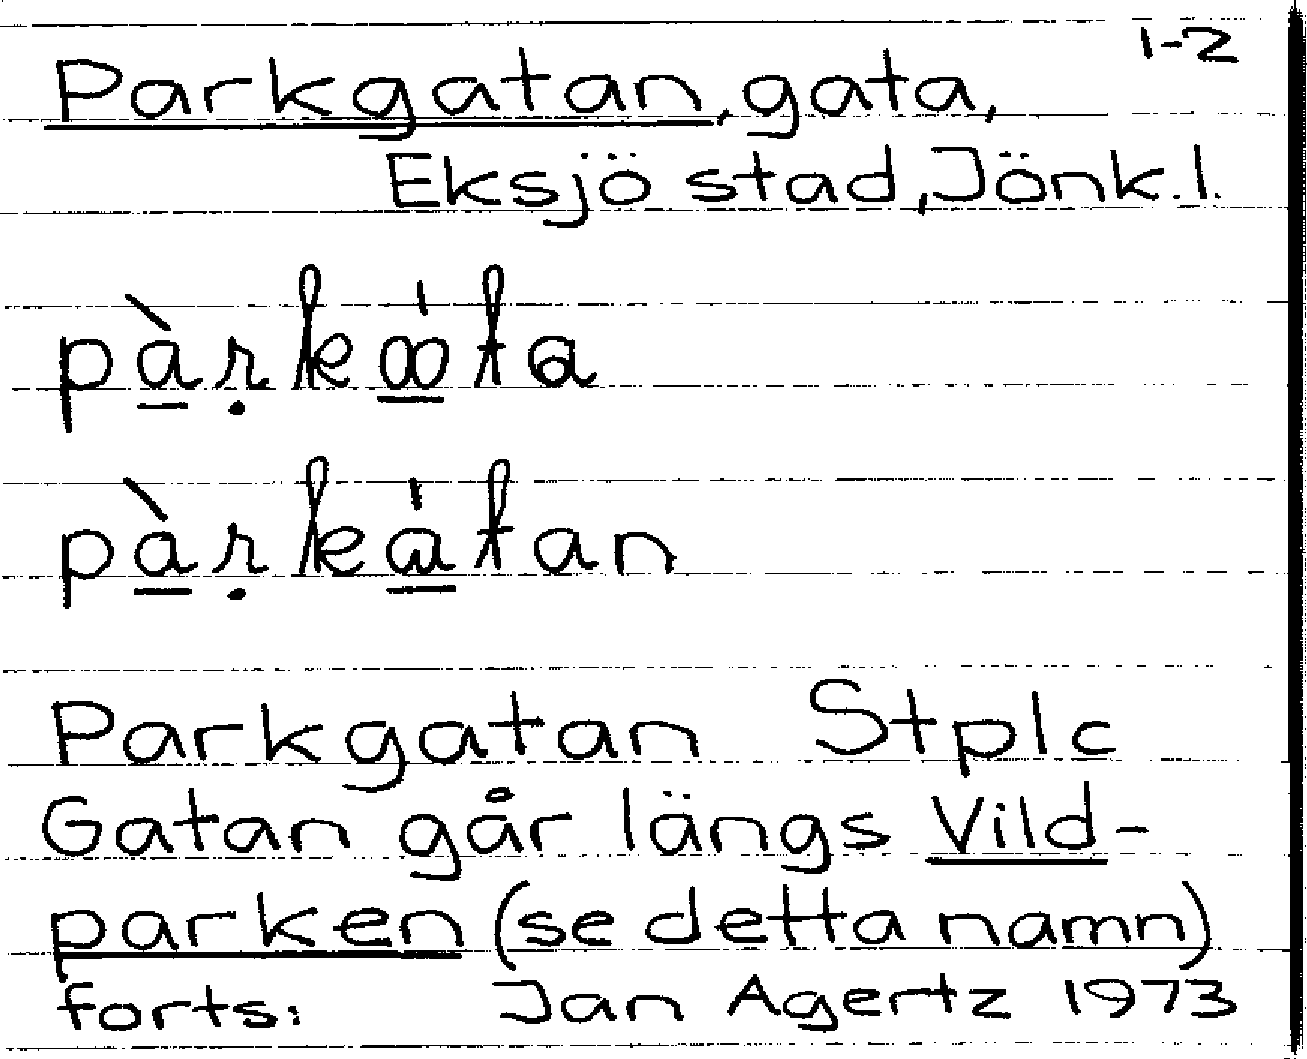 1-2
Parkgatan, gata,
Eksjö stad, Jönk. l.
pàṛkꝏ̍ta
pàṛkα̍tan
Parkgatan Stplc
Gatan går längs Vild-
parken (se detta namn)
forts: Jan Agertz 1973